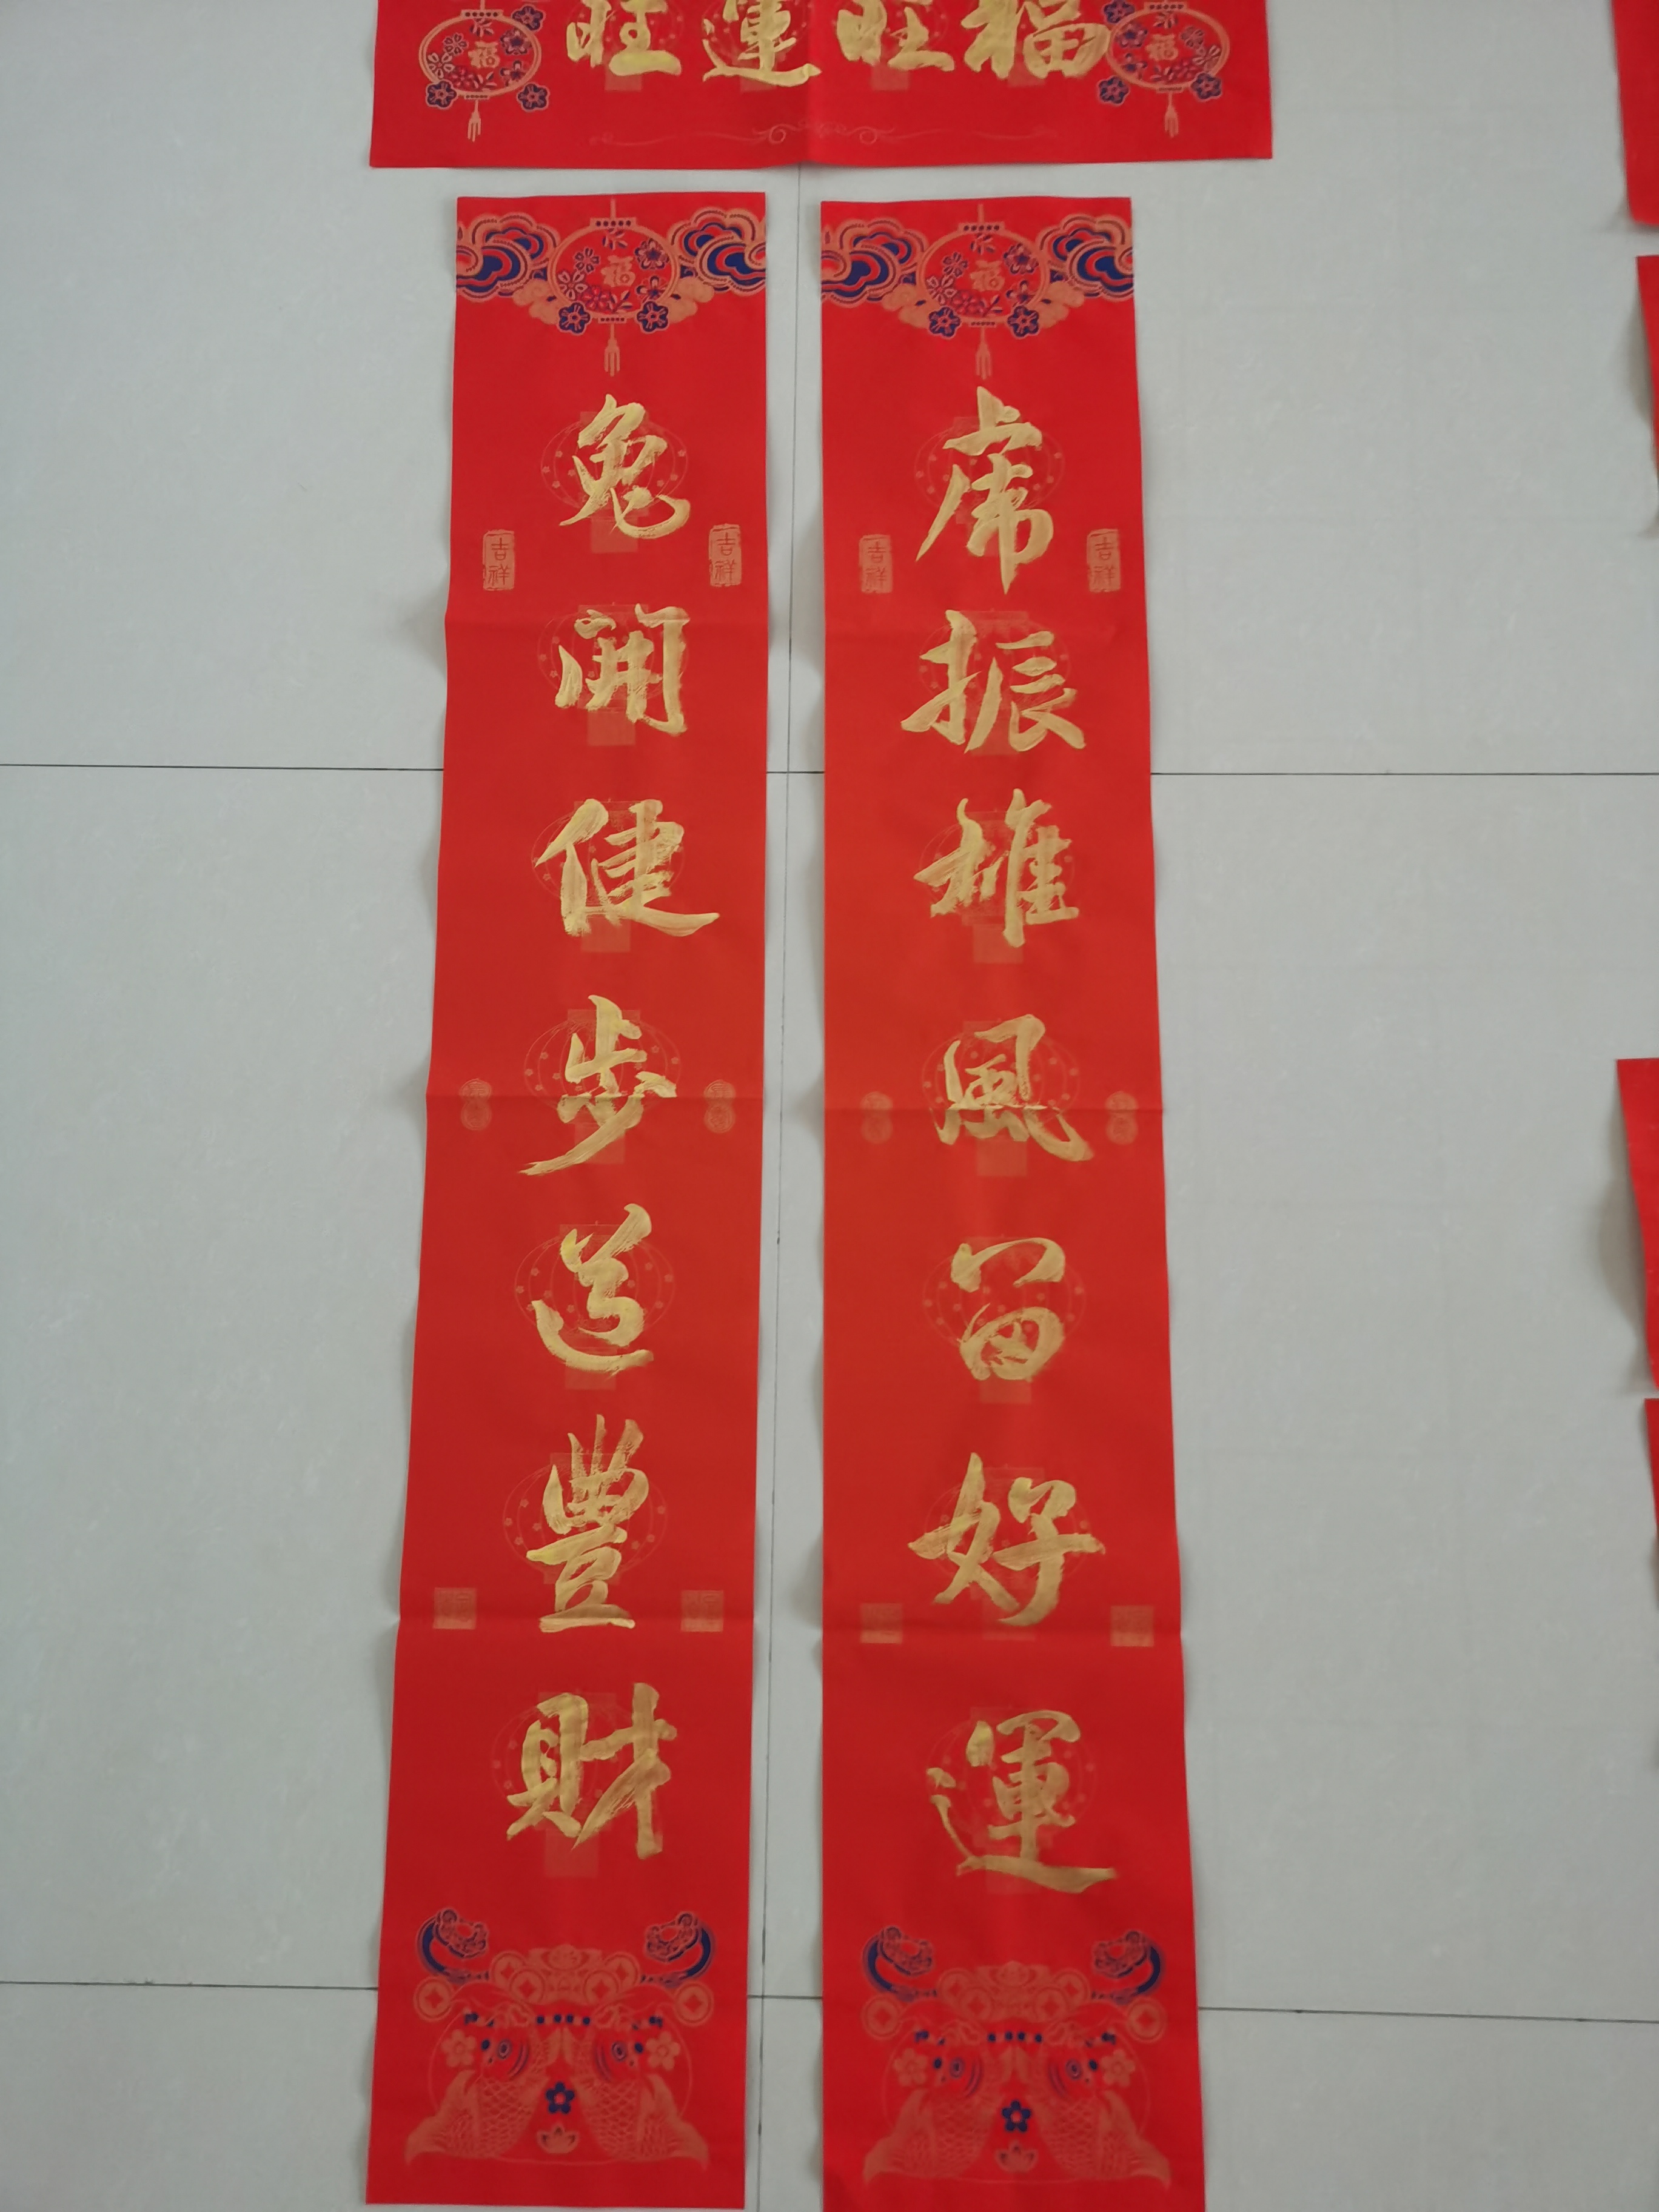 福旺運旺
虎振雄風留好運
兔開健步送豐財
福
福
福
福
吉祥
吉祥
吉祥
吉祥